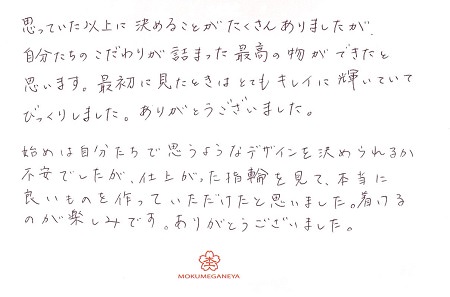 思っていた以上に決めることがたくさんありましたが、
自分たちのこだわりが詰まった最高の物ができたと
思います。最初に見たときはとてもキレイに輝いていて
びっくりしました。ありがとうございました。
始めは自分たちで思うようなデザインを決められるか
不安でしたが、仕上がった指輪を見て、本当に
良いものを作っていただけたと思いました。着ける
のが楽しみです。ありがとうございました。
MOKUMEGANEYA